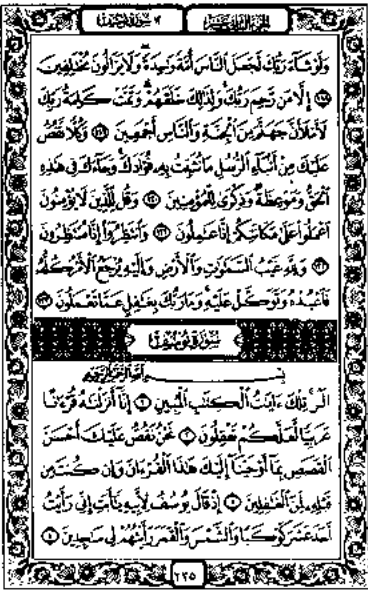 الجزء الثاني عشر
سورة يوسف ١٢
وَلَوْ شَآءَ رَبُّكَ لَجَعَلَ ٱلنَّاسَ أُمَّةً وَٰحِدَةً وَلَا يَزَالُونَ مُخْتَلِفِينَ
﴿١١٨﴾ إِلَّا مَن رَّحِمَ رَبُّكَ وَلِذَٰلِكَ خَلَقَهُمْ وَتَمَّتْ كَلِمَةُ رَبِّكَ
لَأَمْلَأَنَّ جَهَنَّمَ مِنَ ٱلْجِنَّةِ وَٱلنَّاسِ أَجْمَعِينَ ﴿١١٩﴾ وَكُلًّا نَّقُصُّ
عَلَيْكَ مِنْ أَنۢبَآءِ ٱلرُّسُلِ مَا نُثَبِّتُ بِهِۦ فُؤَادَكَ وَجَآءَكَ فِى هَٰذِهِ
ٱلْحَقُّ وَمَوْعِظَةٌ وَذِكْرَىٰ لِلْمُؤْمِنِينَ ﴿١٢٠﴾ وَقُل لِّلَّذِينَ لَا يُؤْمِنُونَ
ٱعْمَلُوا۟ عَلَىٰ مَكَانَتِكُمْ إِنَّا عَٰمِلُونَ ﴿١٢١﴾ وَٱنتَظِرُوٓا۟ إِنَّا مُنتَظِرُونَ
﴿١٢٢﴾ وَلِلَّهِ غَيْبُ ٱلسَّمَٰوَٰتِ وَٱلْأَرْضِ وَإِلَيْهِ يُرْجَعُ ٱلْأَمْرُ كُلُّهُۥ
فَٱعْبُدْهُ وَتَوَكَّلْ عَلَيْهِ وَمَا رَبُّكَ بِغَٰفِلٍ عَمَّا تَعْمَلُونَ ﴿١٢٣﴾
سُورَةُ يُوسُفَ
بِسْمِ ٱللَّهِ ٱلرَّحْمَٰنِ ٱلرَّحِيمِ
الٓر تِلْكَ ءَايَٰتُ ٱلْكِتَٰبِ ٱلْمُبِينِ ﴿١﴾ إِنَّآ أَنزَلْنَٰهُ قُرْءَٰنًا
عَرَبِيًّا لَّعَلَّكُمْ تَعْقِلُونَ ﴿٢﴾ نَحْنُ نَقُصُّ عَلَيْكَ أَحْسَنَ
ٱلْقَصَصِ بِمَآ أَوْحَيْنَآ إِلَيْكَ هَٰذَا ٱلْقُرْءَانَ وَإِن كُنتَ مِن
قَبْلِهِۦ لَمِنَ ٱلْغَٰفِلِينَ ﴿٣﴾ إِذْ قَالَ يُوسُفُ لِأَبِيهِ يَٰٓأَبَتِ إِنِّى رَأَيْتُ
أَحَدَ عَشَرَ كَوْكَبًا وَٱلشَّمْسَ وَٱلْقَمَرَ رَأَيْتُهُمْ لِى سَٰجِدِينَ ﴿٤﴾
٢٣٥